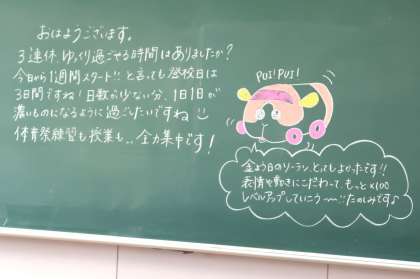 おはようございます。
3連休、ゆっくり過ごせる時間はありましたか?
今日から1週間スタート!! と言っても登校日は
3日間ですね! 日数が少ない分、1日1日が
濃いものになるように過ごしたいですね
体育祭練習も授業も、全力集中です!
PUI! PUI!
金よう日のソーラン、とってもよかったです!!
表情や動きにこだわって、もっと×100
レベルアップしていこう〜〜!! たのしみです♪